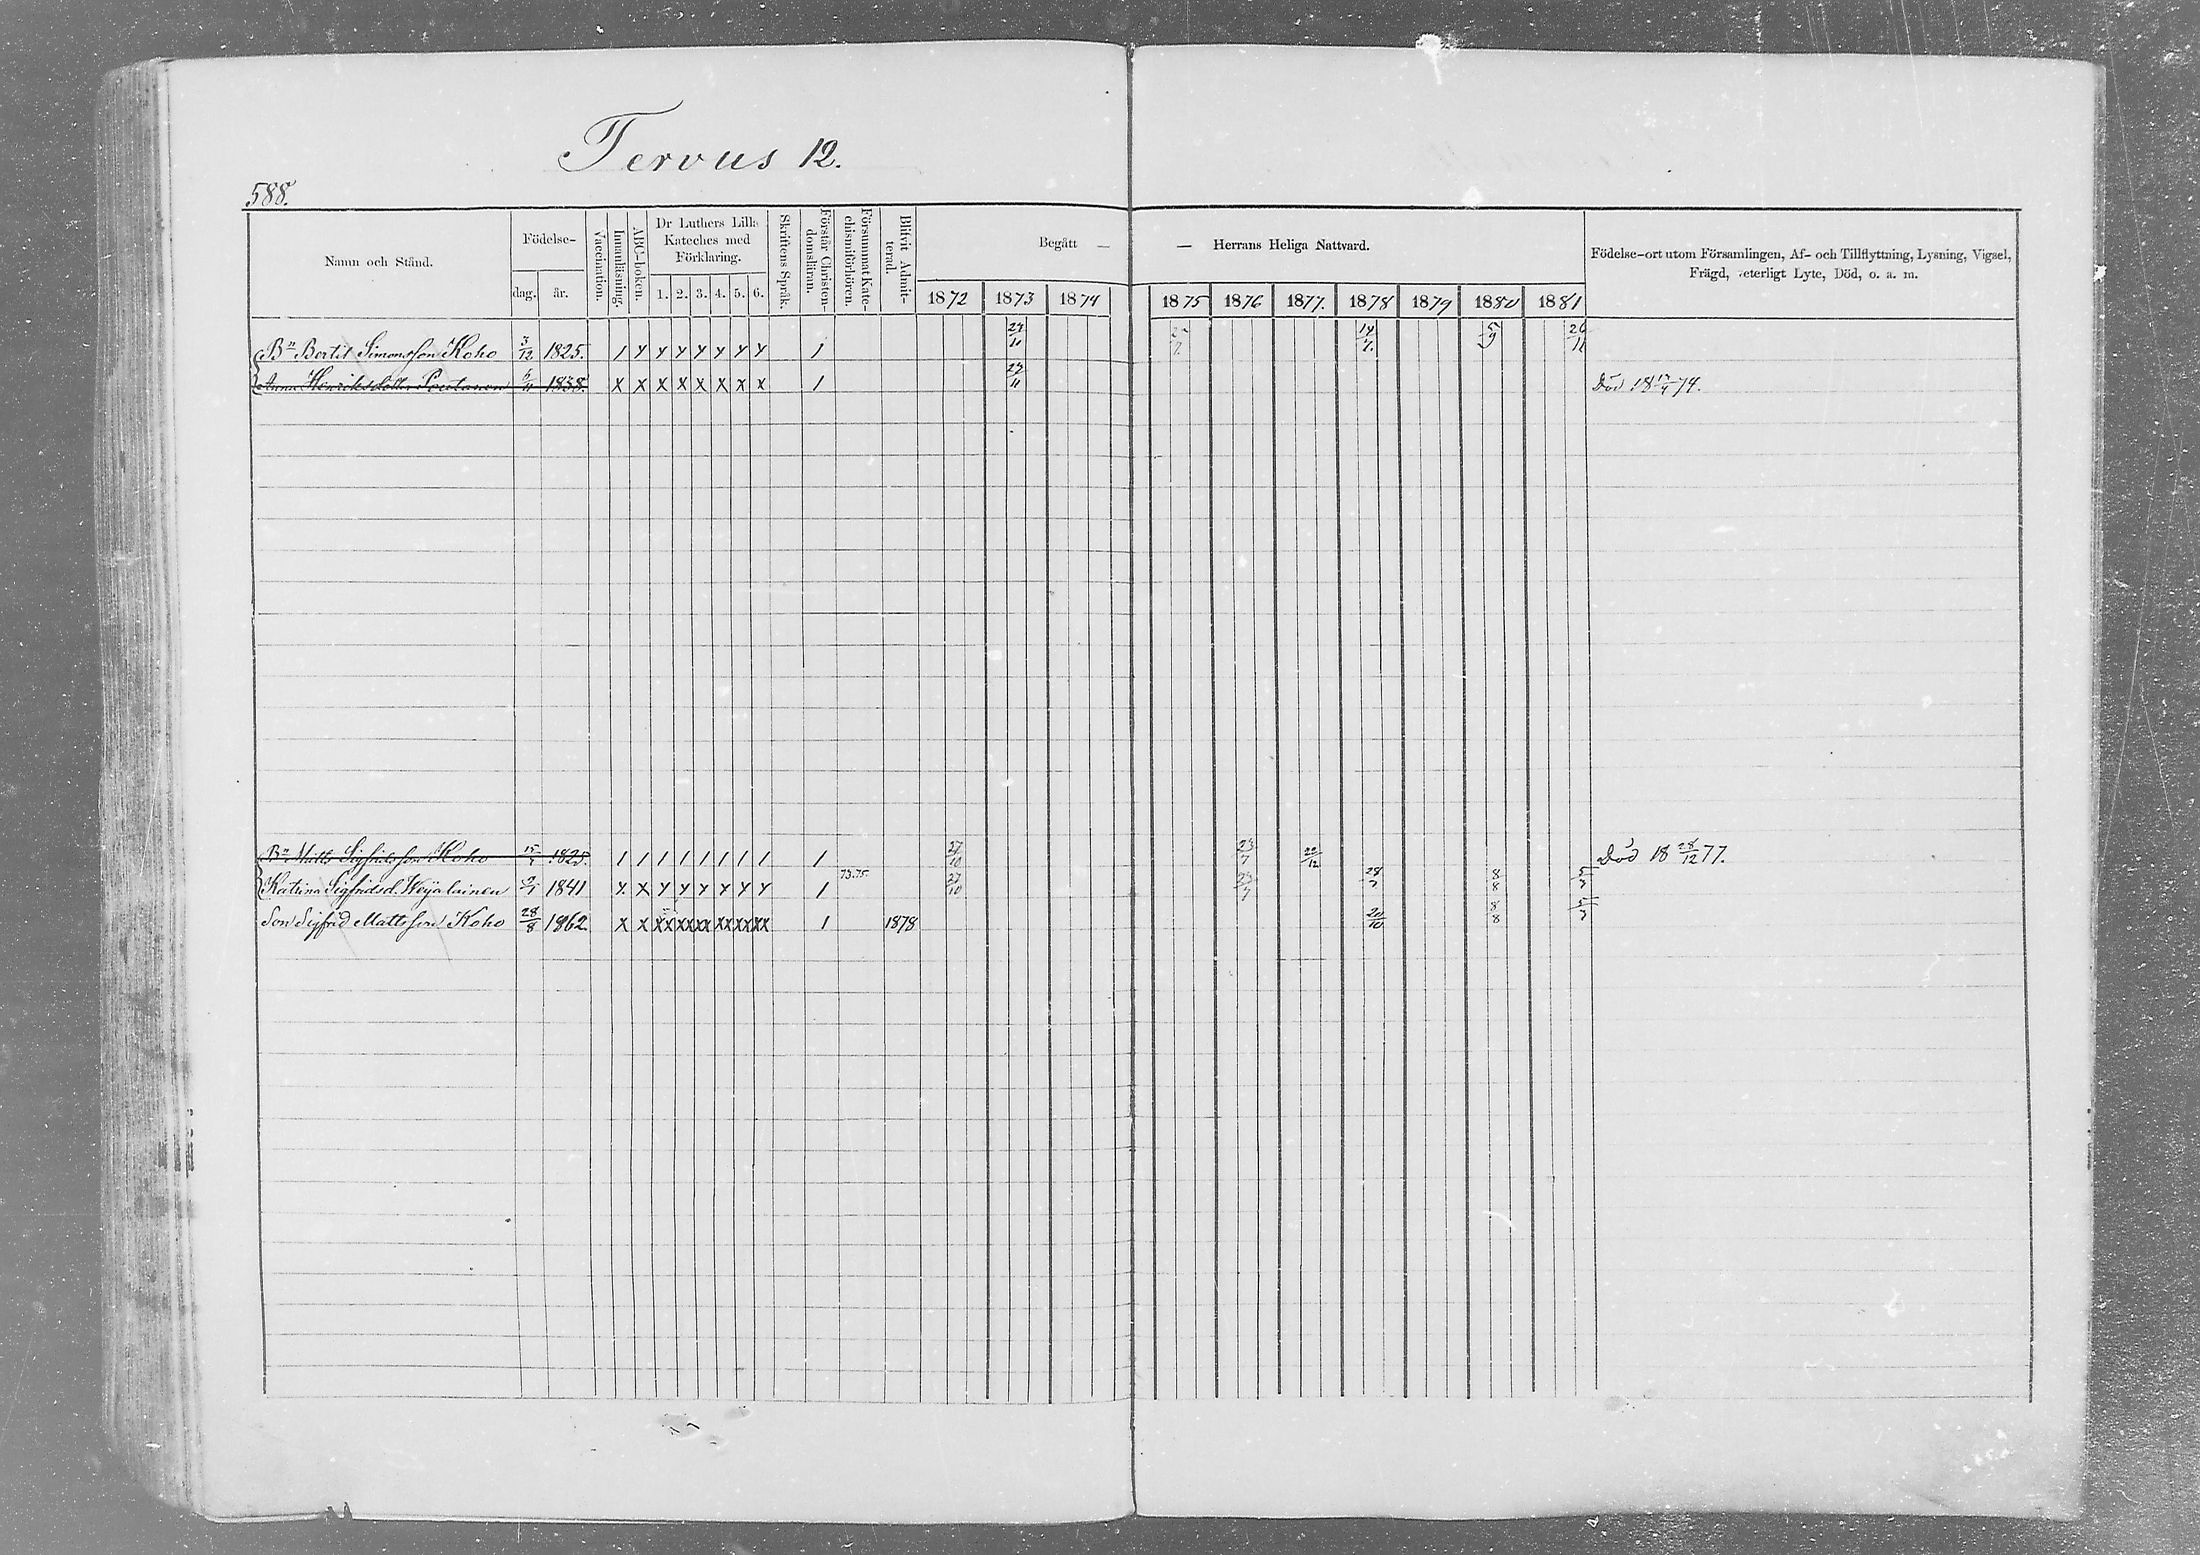 Tervus 12.
588.
Namn och Stånd.
Födelse-
dag. år.
Vaccination.
Innanläsning.
ABC-boken.
Dr Luthers Lilla Kateches med Förklaring.
1. 2. 3. 4. 5. 6.
Skriftens Språk.
Förstår Christendomsläran.
Försummat Katechismiförhören.
Blifvit Admitterad.
Begått —
— Herrans Heliga Nattvard.
1872 1873 1874 1875 1876 1877. 1878 1879 1880 1881
Födelse-ort utom Församlingen, Af- och Tillflyttning, Lysning, Vigsel,
Frägd, veterligt Lyte, Död, o. a. m.
Bn Bertil Simonsson Koho 3/12 1825. 14/7. 5/9
Anna Henriksdotter 1838. Död 18 74.
Bn Matts Sigfridsson Koho 1825. 27/10 23/7 22/12 Död 18 28/12 77.
Katrina Sigfridsd. Weijalainen 1841 73.75. 27/10 23/7 28/7 8/8
Son Sigfrid Mattsson Koho 28/8 1862. 1878 20/10 8/8